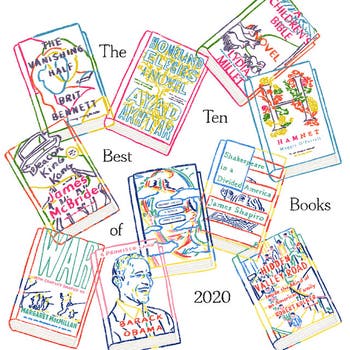 The
Ten
Best
of
Books
2020
THE
VANISHING
HALF
BRIT
BENNETT
HOMELAND
ELEGIES
A NOVEL
AYAD
AKHTAR
A
CHILDREN'S
BIBLE
A
NOVEL
LYDIA
MILLET
HAMNET
Maggie O'Farrell
Deacon
King
Kong
James
McBride
Shakespeare
in a
Divided America
James Shapiro
WAR
MARGARET MACMILLAN
A PROMISED
BARACK
OBAMA
HIDDEN
VALLEY ROAD
ROBERT KOLKER